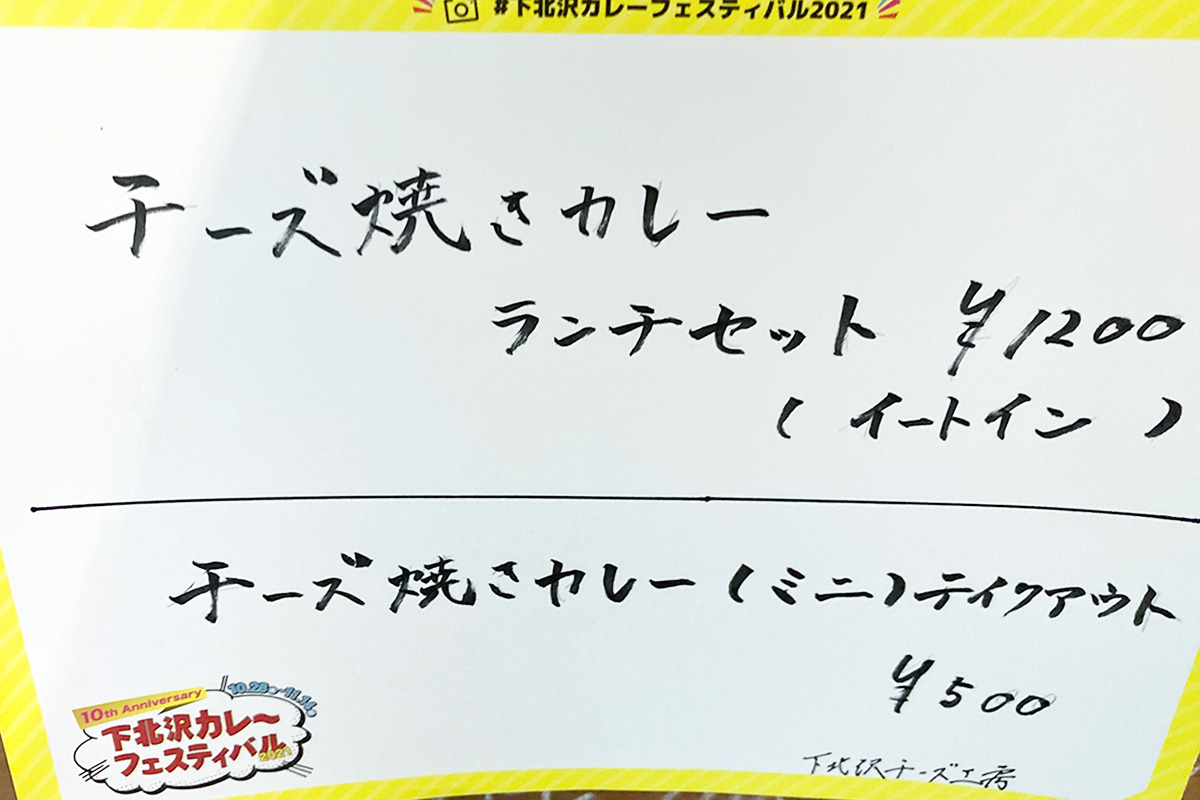 #下北沢カレーフェスティバル2021
チーズ焼きカレー
ランチセット ¥1200
(イートイン)
チーズ焼きカレー(ミニ)テイクアウト
¥500
10th Anniversary
10.28〜11.14
下北沢カレ〜
フェスティバル
2021
下北沢チーズ工房